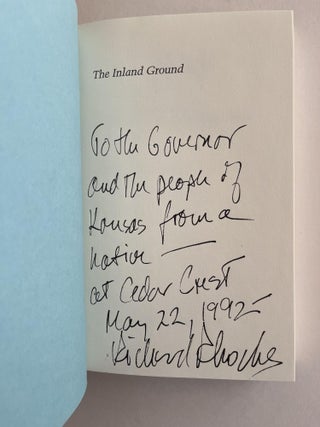 The Inland Ground
To the Governor
and the people of
Kansas from a
native —
at Cedar Crest
May 22, 1992
Richard Rhodes